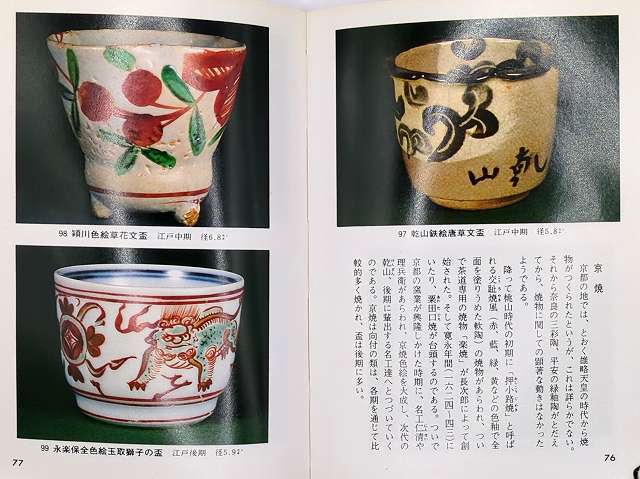 乾山
97 乾山鉄絵唐草文盃 江戸中期 径5.8㌢
京焼
京都の地では、とおく雄略天皇の時代から焼
物がつくられたというが、これは詳らかでない。
それから奈良の三彩陶、平安の緑釉陶がとだえ
てから、焼物に関しての顕著な動きはなかった
ようである。
降って桃山時代の初期に「押小路焼」と呼ば
れる交趾焼風（赤、藍、緑、黄などの色釉で全
面を塗りうめた軟陶）の焼物があらわれ、つい
で茶道専用の焼物「楽焼」が長次郎によって創
始された。そして寛永年間（一六二四―四三）に
いたり、粟田口焼が台頭するのである。ついで
京都の窯業が興隆しかけた時期に、名工仁清や
理兵衛があらわれ、京焼色絵を大成し、次代の
乾山、後期に輩出する名工達へとつづいていく
のである。京焼は向付の類は、各期を通じて比
較的多く焼かれ、盃は後期に多い。
76
98 穎川色絵草花文盃 江戸中期 径6.8㌢
99 永楽保全色絵玉取獅子の盃 江戸後期 径5.9㌢
77